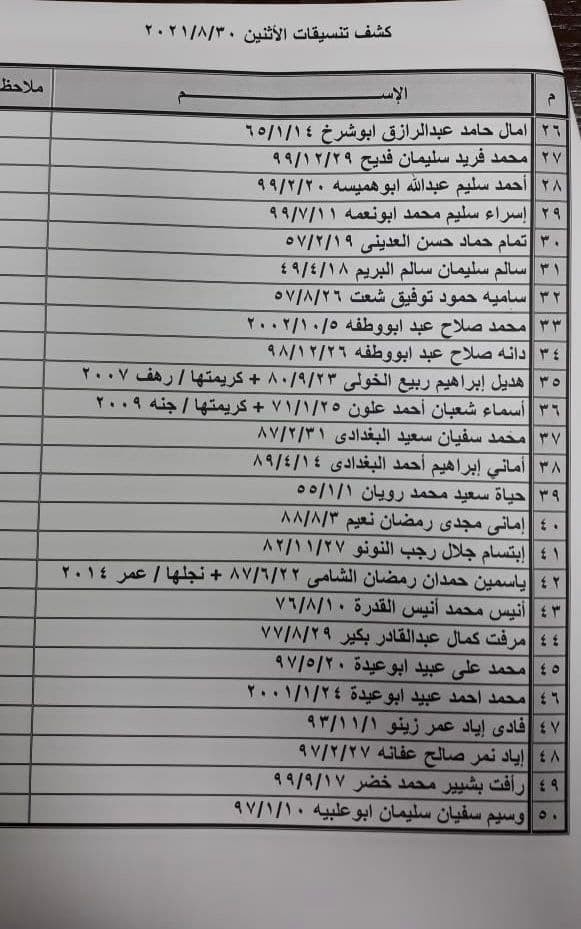 كشف تنسيقات الأثنين ٢٠٢١/٨/٣٠
م الإســـــــــم ملاحظ
٢٦ امال حامد عبدالرازق ابوشرخ ٦٥/١/١٤
٢٧ محمد فريد سليمان فديح ٩٩/١٢/٢٩
٢٨ أحمد سليم عبدالله ابوهميسه ٩٩/٢/٢٠
٢٩ إسراء سليم محمد ابونعمه ٩٩/٧/١١
٣٠ تمام حماد حسن العدينى ٥٧/٢/١٩
٣١ سالم سليمان سالم البريم ٤٩/٤/١٨
٣٢ ساميه حمود توفيق شعت ٥٧/٨/٢٦
٣٣ محمد صلاح عبد ابووطفه ٢٠٠٢/١٠/٥
٣٤ دانه صلاح عبد ابووطفه ٩٨/١٢/٢٦
٣٥ هديل إبراهيم ربيع الخولى ٨٠/٩/٢٣ + كريمتها / رهف ٢٠٠٧
٣٦ أسماء شعبان أحمد علون ٧١/١/٢٥ + كريمتها / جنه ٢٠٠٩
٣٧ محمد سفيان سعيد البغدادى ٨٧/٢/٣١
٣٨ أماني إبراهيم أحمد البغدادى ٨٩/٤/١٤
٣٩ حياة سعيد محمد رويان ٥٥/١/١
٤٠ إمانى مجدى رمضان نعيم ٨٨/٨/٣
٤١ إبتسام جلال رجب النونو ٨٢/١١/٢٧
٤٢ ياسمين حمدان رمضان الشامى ٨٧/٦/٢٢ + نجلها / عمر ٢٠١٤
٤٣ أنيس محمد أنيس القدرة ٧٦/٨/١٠
٤٤ مرفت كمال عبدالقادر بكير ٧٧/٨/٢٩
٤٥ محمد على عبيد ابوعيدة ٩٧/٥/٢٠
٤٦ محمد احمد عبيد ابوعيدة ٢٠٠١/١/٢٤
٤٧ فادى إياد عمر زينو ٩٣/١١/١
٤٨ إياد نمر صالح عفانه ٩٧/٢/٢٧
٤٩ رأفت بشيير محمد خضر ٩٩/٩/١٧
٥٠ وسيم سفيان سليمان ابوعلبيه ٩٧/١/١٠